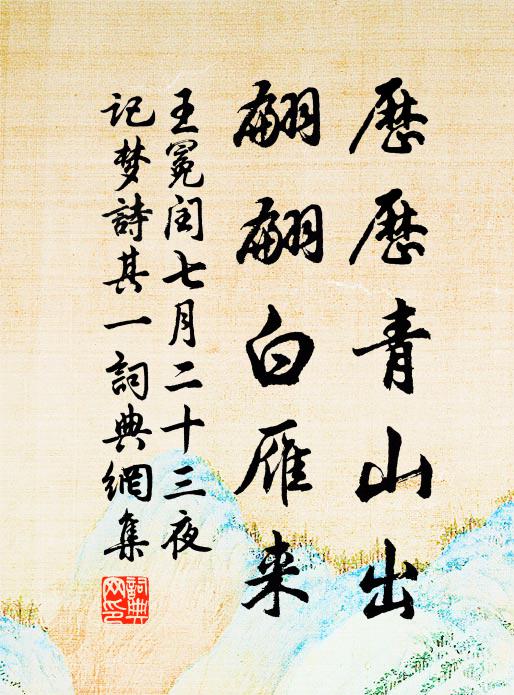 歷歷青山出
翩翩白雁来
王冕闰七月二十三夜
记梦詩其一詞典網集
詞典網印